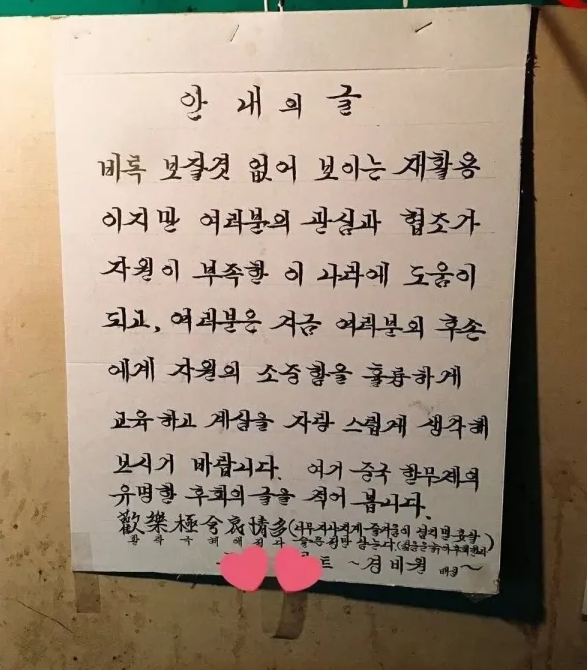 안내의 글
비록 보잘것 없어 보이는 재활용
이지만 여러분의 관심과 협조가
자원이 부족한 이 사회에 도움이
되고, 여러분은 지금 여러분의 후손
에게 자원의 소중함을 훌륭하게
교육하고 계심을 자랑 스럽게 생각해
보시기 바랍니다. 여기 중국 한무제의
유명한 후회의 글을 적어 봅니다.
歡樂極兮哀情多(너무 지나치게 즐거움이 넘치면 도리
환락극혜애정다
~경비원 배상~